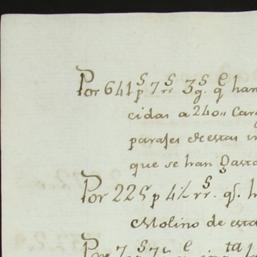 Por 641 ps 7 rrs 3 gs. q han
cidas a 2400 Car
parajes de estas in
que se han Gasta
Por 225 p 4½ rrs. qe. h
Molino de esta
Por 7